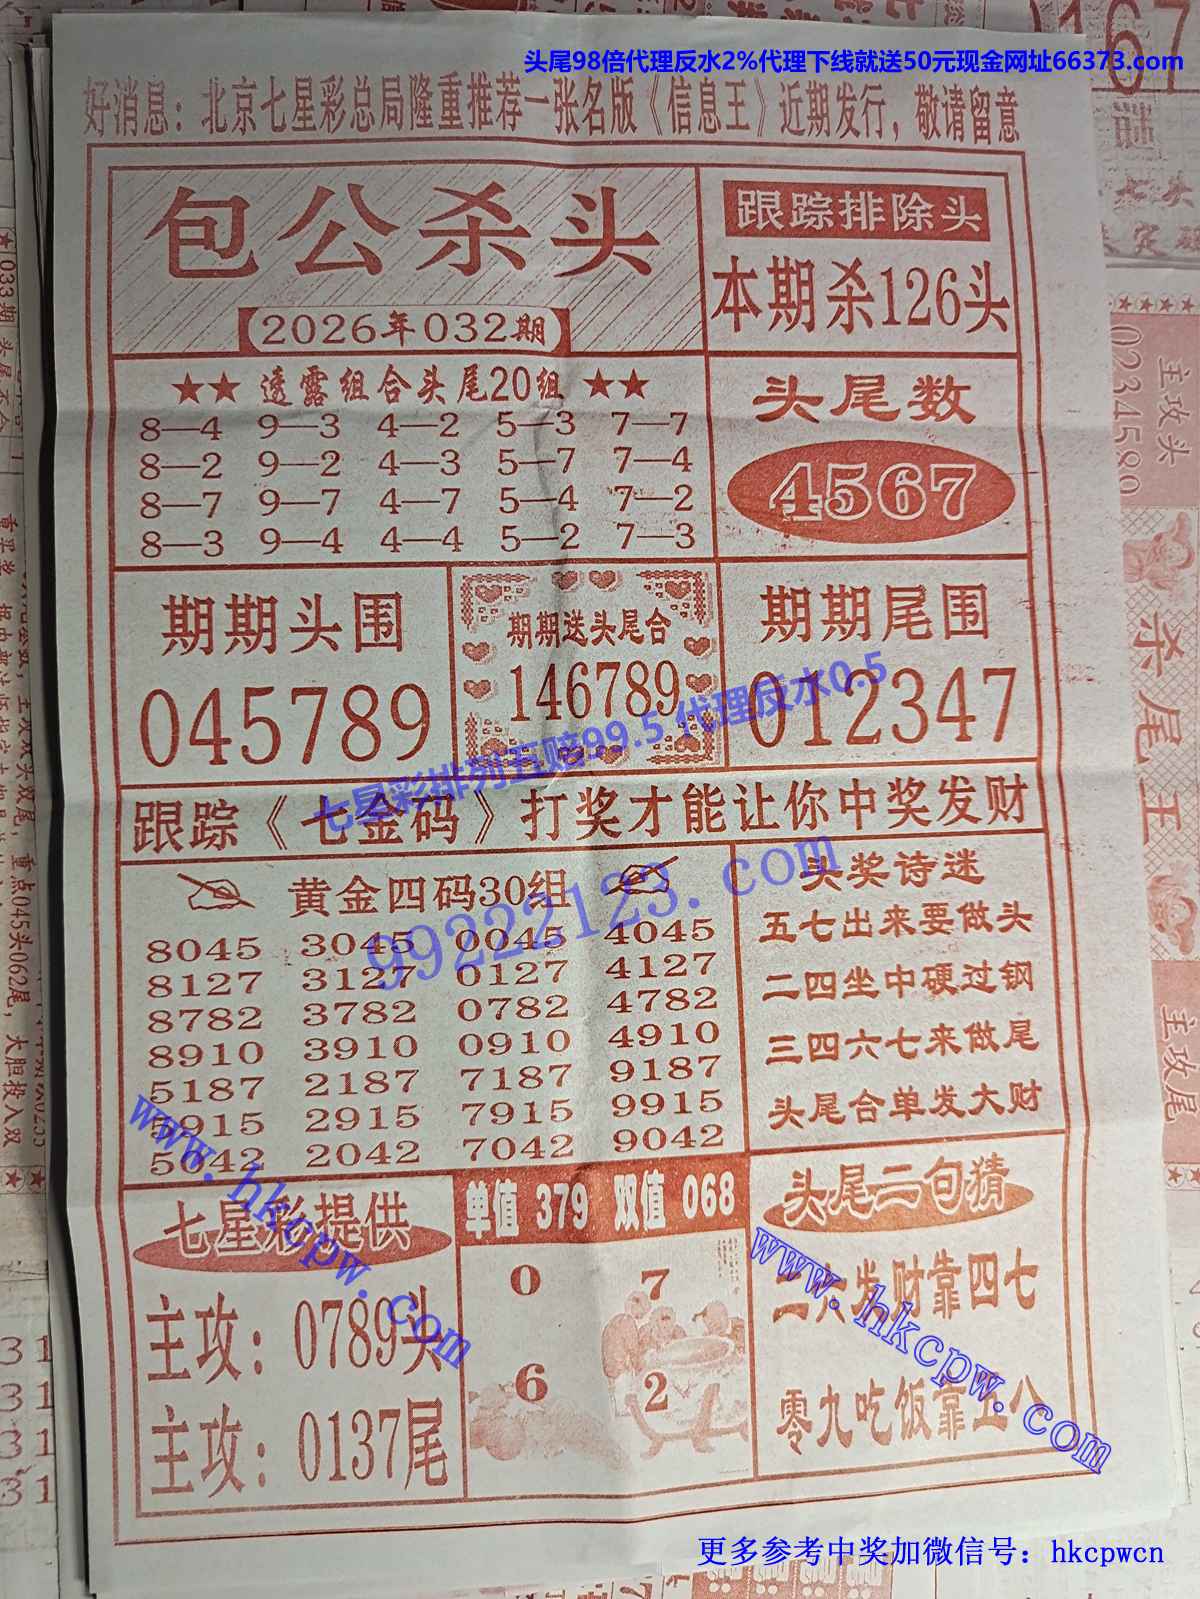 头尾98倍代理反水2%代理下线就送50元现金网址66373.com
好消息：北京七星彩总局隆重推荐一张名版《信息王》近期发行，敬请留意
包公杀头
2026年032期
跟踪排除头
本期杀126头
★★ 透露组合头尾20组 ★★
8—4 9—3 4—2 5—3 7—7
8—2 9—2 4—3 5—7 7—4
8—7 9—7 4—7 5—4 7—2
8—3 9—4 4—4 5—2 7—3
头尾数
4567
期期头围
045789
期期送头尾合
146789
期期尾围
012347
七星彩排列五赔99.5 代理反水0.5
跟踪《七金码》打奖才能让你中奖发财
黄金四码30组
99222123.com
8045 3045 0045 4045
8127 3127 0127 4127
8782 3782 0782 4782
8910 3910 0910 4910
5187 2187 7187 9187
5915 2915 7915 9915
5042 2042 7042 9042
头奖诗迷
五七出来要做头
二四坐中硬过钢
三四六七来做尾
头尾合单发大财
www.hkcpw.com
七星彩提供
主攻：0789头
主攻：0137尾
单值 379 双值 068
0 7
6 2
头尾二句猜
二六发财靠四七
零九吃饭靠五八
www.hkcpw.com
更多参考中奖加微信号：hkcpwcn
主攻头
023458
杀尾王
主攻尾